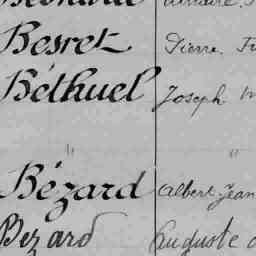 Besret Pierre
Béthuel Joseph
" "
Bézard Albert Jean
Bezard Auguste